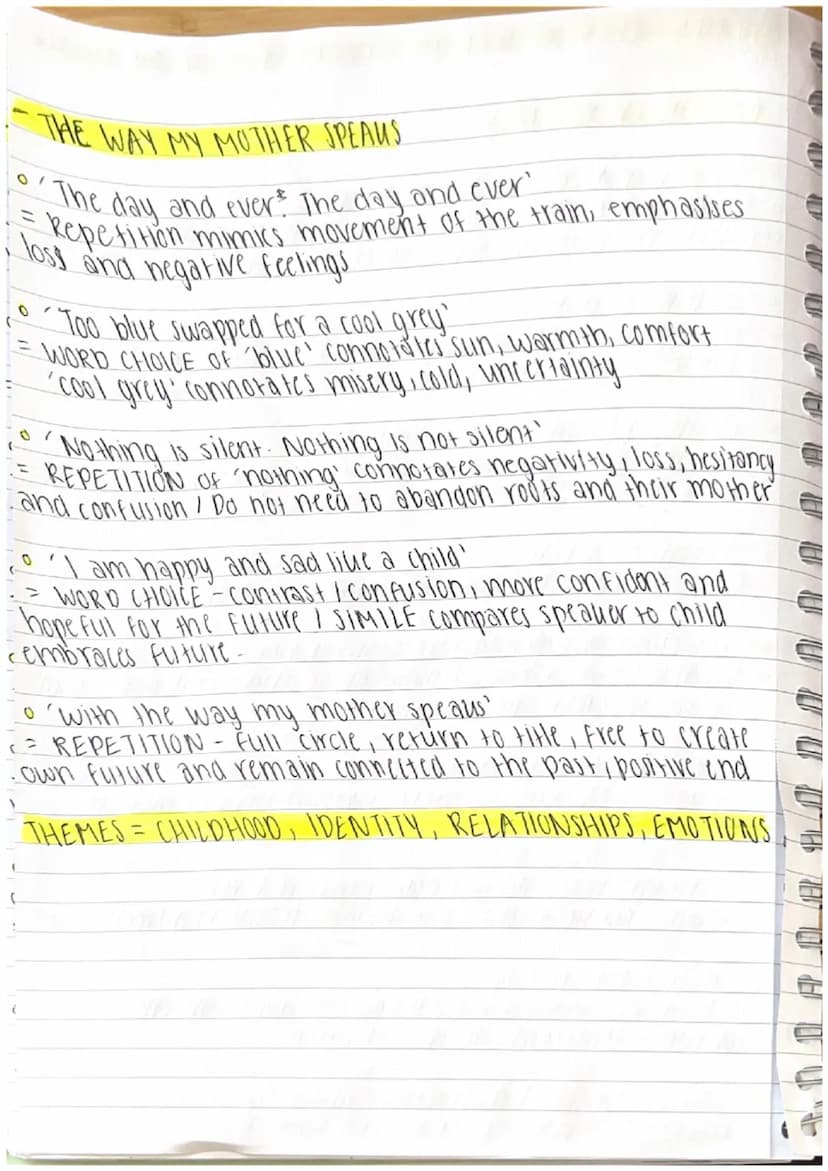 - THE WAY MY MOTHER SPEAKS
'The day and ever. The day and ever'
= Repetition mimics movement of the train, emphasises
loss and negative feelings
'Too blue swapped for a cool grey'
= WORD CHOICE OF 'blue' connotates sun, warmth, comfort
'cool grey' connotates misery, cold, uncertainty
'Nothing is silent. Nothing is not silent'
= REPETITION of 'nothing' connotates negativity, loss, hesitancy
and confusion / Do not need to abandon roots and their mother
'I am happy and sad like a child'
= WORD CHOICE - contrast / confusion, more confident and
hopeful for the future / SIMILE compares speaker to child
embraces future.
'with the way my mother speaks'
= REPETITION - full circle, return to title, free to create
own future and remain connected to the past, positive end
THEMES = CHILDHOOD, IDENTITY, RELATIONSHIPS, EMOTIONS